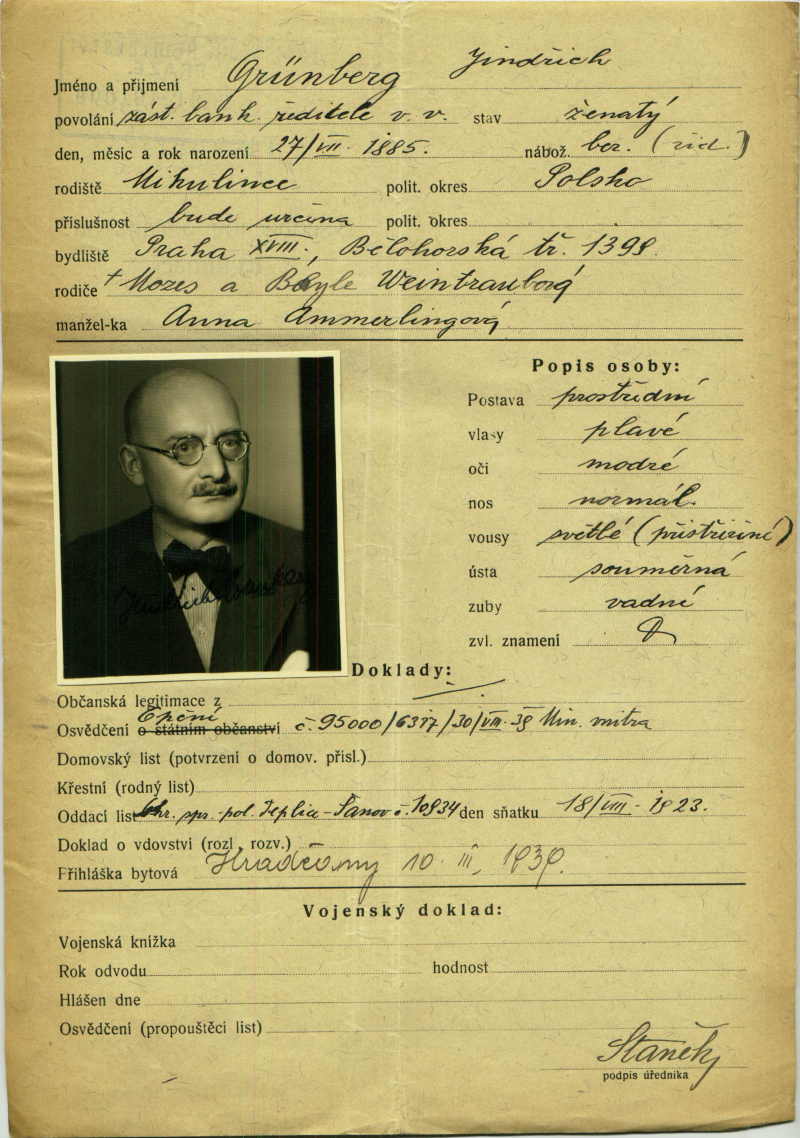 Jméno a přijmení Grünberg Jindřich
povolání zást. bank. ředitele v. v. stav ženatý
den, měsíc a rok narození 27/VII. 1885. nábož. bez. (žid.)
rodiště Mikulince polit. okres Polsko
příslušnost bude určena polit. okres
bydliště Praha XVIII., Bělohorská tř. 1398.
rodiče + Mozes a Beyle Weintraubová
manžel-ka Anna Ammerlingová
Popis osoby:
Postava prostřední
vlasy plavé
oči modré
nos normál.
vousy světlé (přistřižené)
ústa souměrná
zuby vadné
zvl. znamení
Doklady:
Občanská legitimace z
Osvědčení o státním občanství č. 95000/6317/30/VIII. 38 Min. vnitra
Domovský list (potvrzení o domov. přísl.)
Křestní (rodný list)
Oddací list Okr. spr. pol. Teplice-Šanov č. 10934 den sňatku 18/VIII - 1923.
Doklad o vdovství (rozl. rozv.)
Přihláška bytová Hradčany 10. III. 1939.
Vojenský doklad:
Vojenská knížka
Rok odvodu hodnost
Hlášen dne
Osvědčení (propouštěci list)
Staněk
podpis úředníka